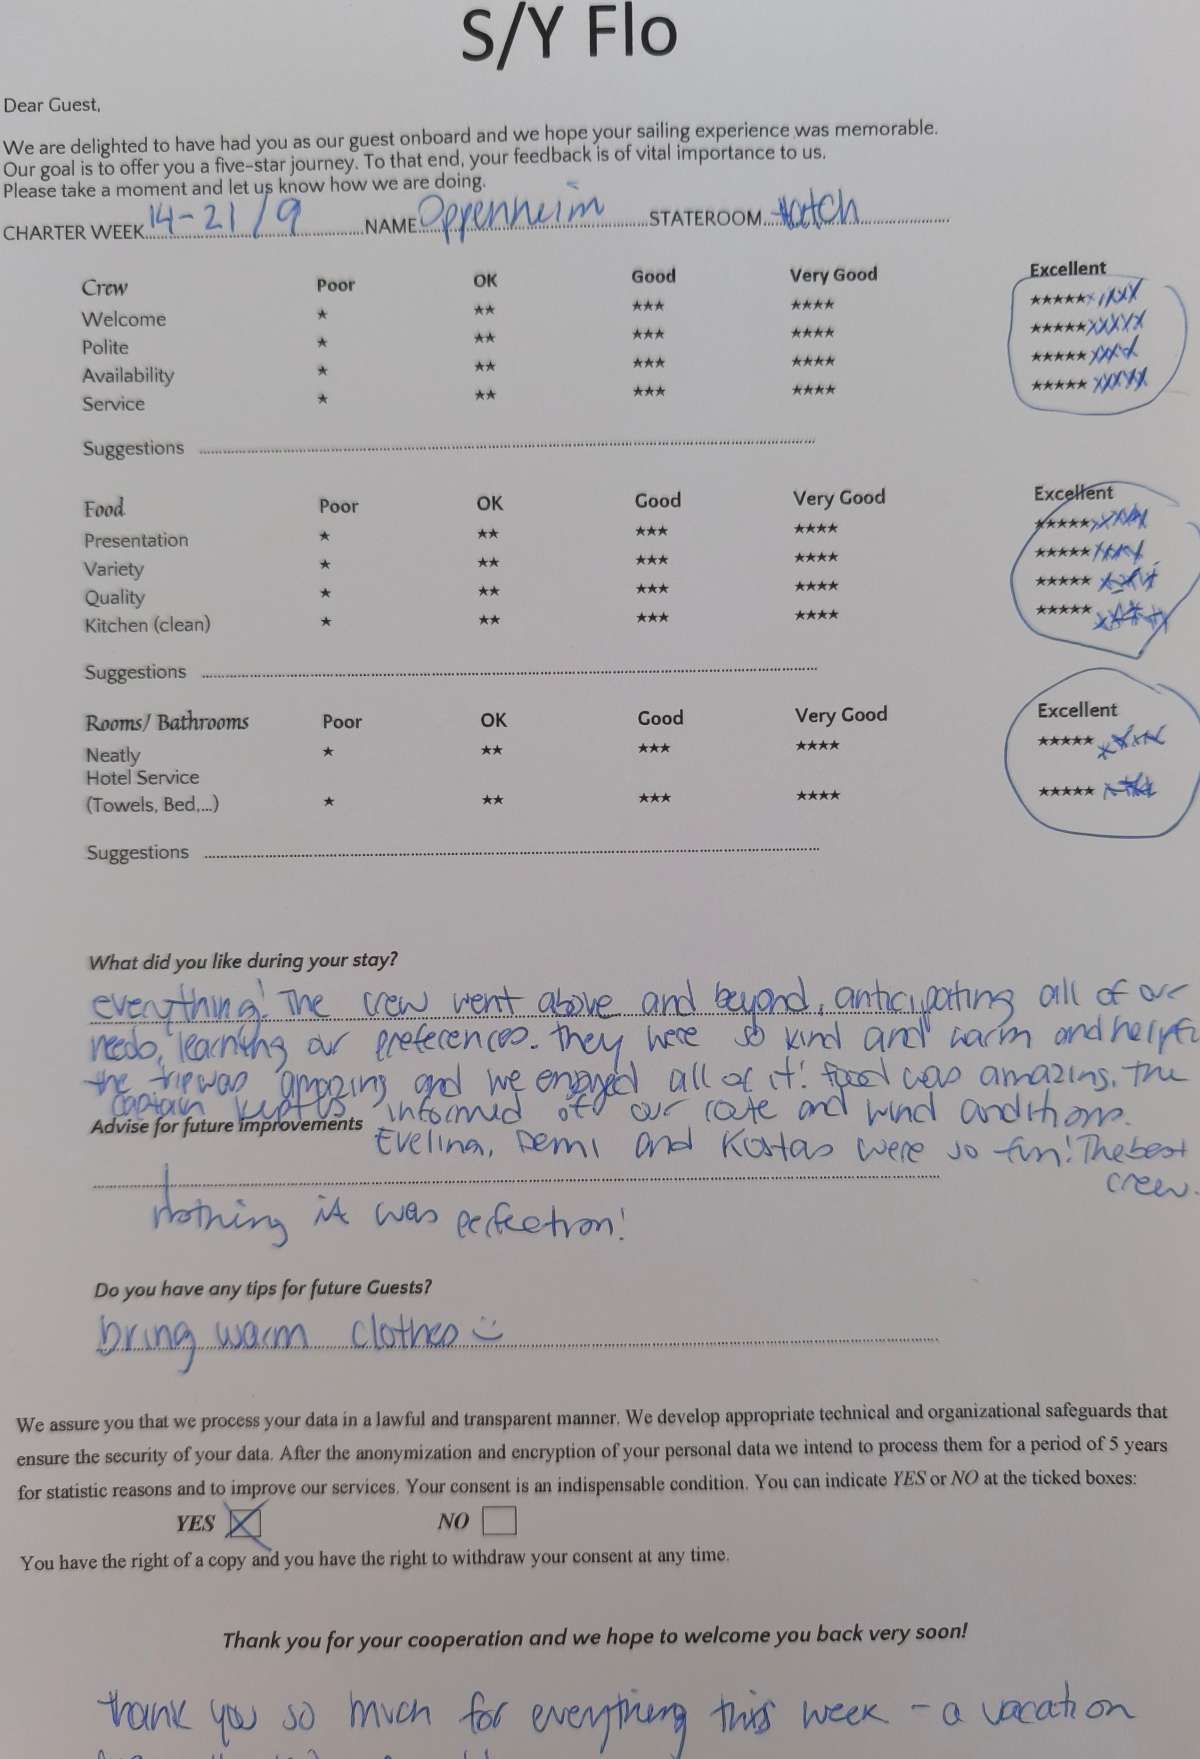 S/Y Flo
Dear Guest,
We are delighted to have had you as our guest onboard and we hope your sailing experience was memorable.
Our goal is to offer you a five-star journey. To that end, your feedback is of vital importance to us.
Please take a moment and let us know how we are doing.
CHARTER WEEK 14-21/9 NAME Oppenheim STATEROOM Hatch
Crew Poor OK Good Very Good Excellent
Welcome ★ ★★ ★★★ ★★★★ ★★★★★
Polite ★ ★★ ★★★ ★★★★ ★★★★★
Availability ★ ★★ ★★★ ★★★★ ★★★★★
Service ★ ★★ ★★★ ★★★★ ★★★★★
Suggestions
Food Poor OK Good Very Good Excellent
Presentation ★ ★★ ★★★ ★★★★ ★★★★★
Variety ★ ★★ ★★★ ★★★★ ★★★★★
Quality ★ ★★ ★★★ ★★★★ ★★★★★
Kitchen (clean) ★ ★★ ★★★ ★★★★ ★★★★★
Suggestions
Rooms/ Bathrooms Poor OK Good Very Good Excellent
Neatly ★ ★★ ★★★ ★★★★ ★★★★★
Hotel Service
(Towels, Bed,...) ★ ★★ ★★★ ★★★★ ★★★★★
Suggestions
What did you like during your stay?
everything! The crew went above and beyond, anticipating all of our
needs, learning our preferences. they were so kind and warm and helpful
the trip was amazing and we enjoyed all of it! food was amazing. The
captain kept us informed of our route and wind conditions.
Advise for future improvements
Evelina, Demi and Kostas were so fun! The best
crew.
Nothing it was perfection!
Do you have any tips for future Guests?
bring warm clothes :)
We assure you that we process your data in a lawful and transparent manner. We develop appropriate technical and organizational safeguards that
ensure the security of your data. After the anonymization and encryption of your personal data we intend to process them for a period of 5 years
for statistic reasons and to improve our services. Your consent is an indispensable condition. You can indicate YES or NO at the ticked boxes:
YES NO
You have the right of a copy and you have the right to withdraw your consent at any time.
Thank you for your cooperation and we hope to welcome you back very soon!
thank you so much for everything this week - a vacation